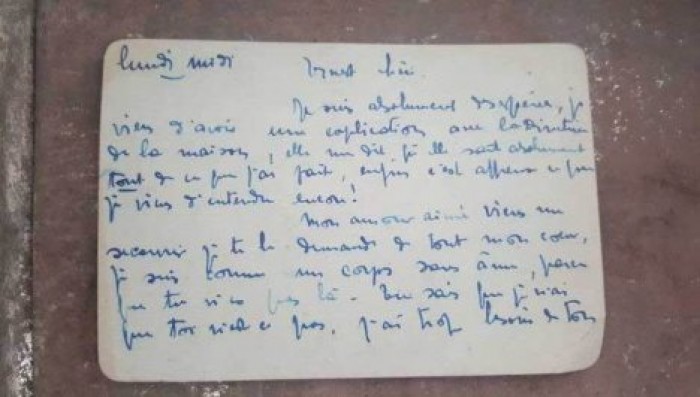 lundi midi
Je suis absolument désespérée, je
viens d'avoir une explication avec la Directrice
de la maison, elle me dit qu'elle sait absolument
tout de ce que j'ai fait, enfin c'est affreux ce que
je viens d'entendre encore!
Mon amour aimé viens me
secourir je te le demande de tout mon cœur,
je suis comme un corps sans âme, parce
que tu n'es pas là. Tu sais que je n'ai
que toi n'est ce pas, j'ai trop besoin de toi